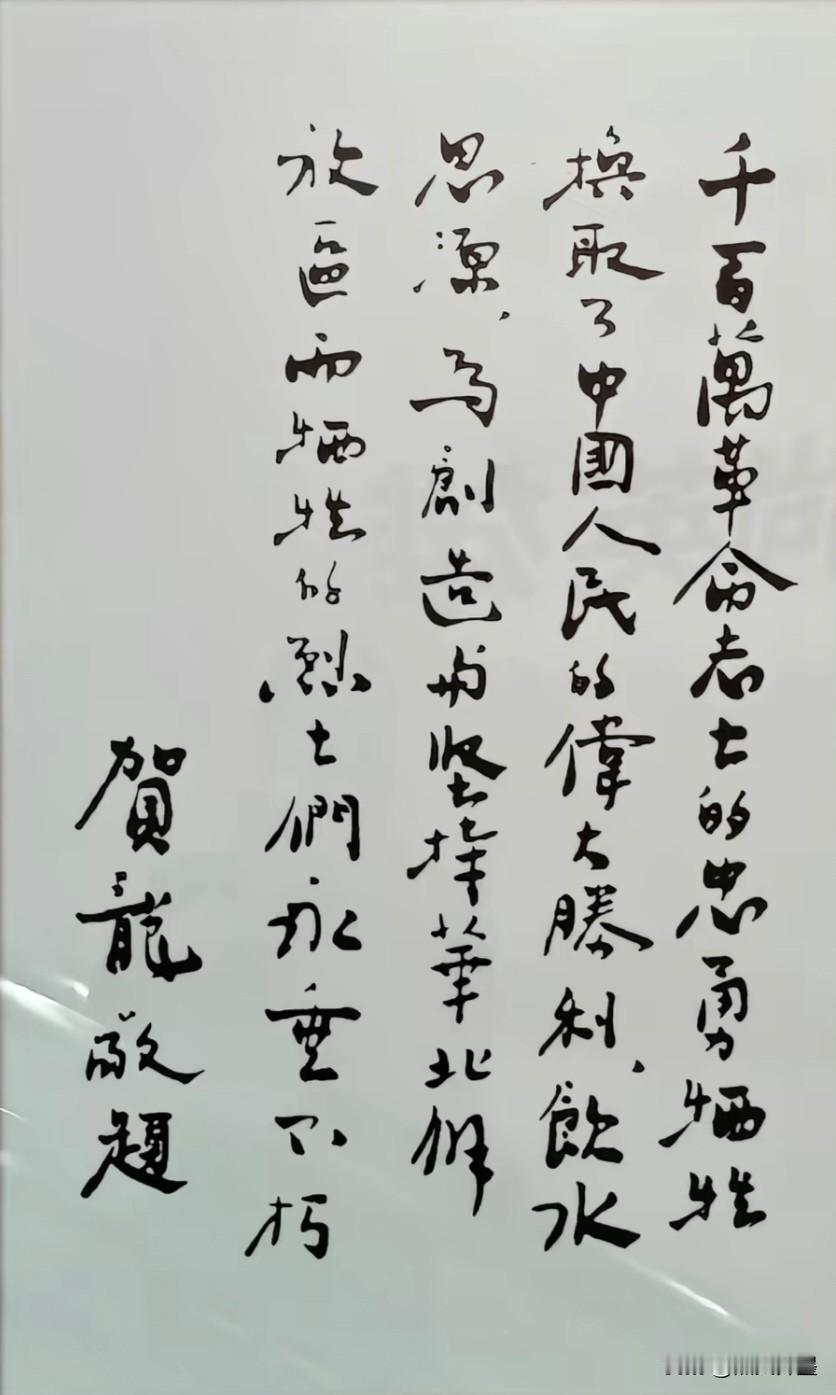 千百萬革命志士的忠勇牺牲
換取了中國人民的偉大勝利、飲水
思源、為創造与坚持華北解
放區而牺牲的烈士們永垂不朽
賀龍敬題